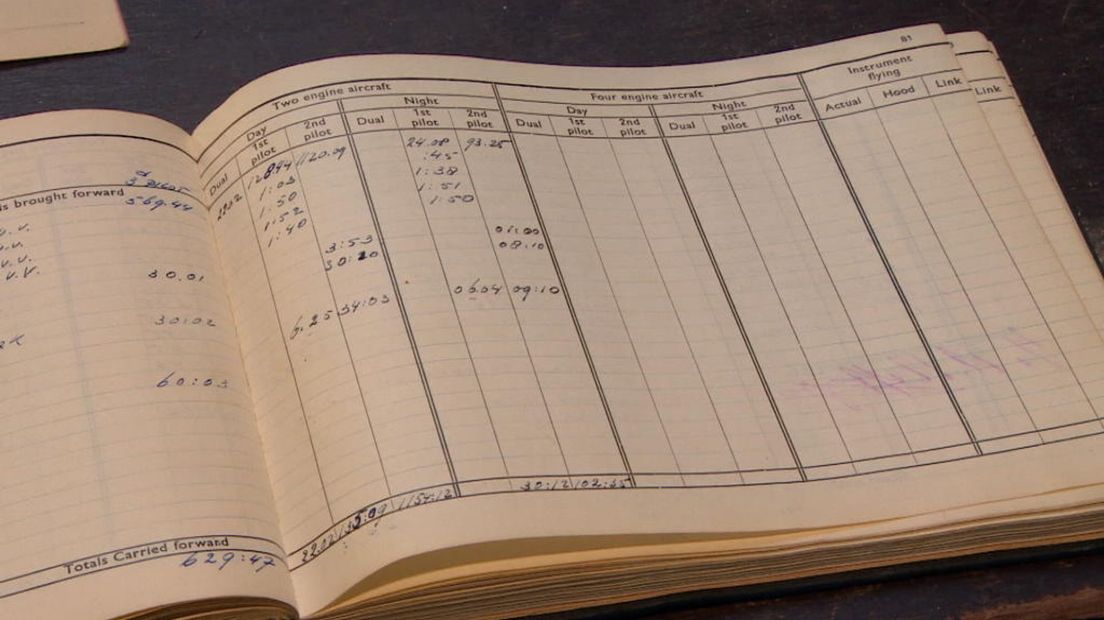 81
Two engine aircraft Four engine aircraft Instrument flying
Day Night Day Night
Dual 1st pilot 2nd pilot Dual 1st pilot 2nd pilot Dual 1st pilot 2nd pilot Dual 1st pilot 2nd pilot Actual Hood Link
Link
1120.09 24.08 93.25
s brought forward
569:44
1:03 :45
1:50 1:38
1:52 1:51
1:40 1:50
3:53 01:00
30:10 08:10
30.01
06.04 09:10
6:25 34:03
30:02
60:03
22.02 135:09 1154:12 30:12 102:35
Totals Carried forward
629:47